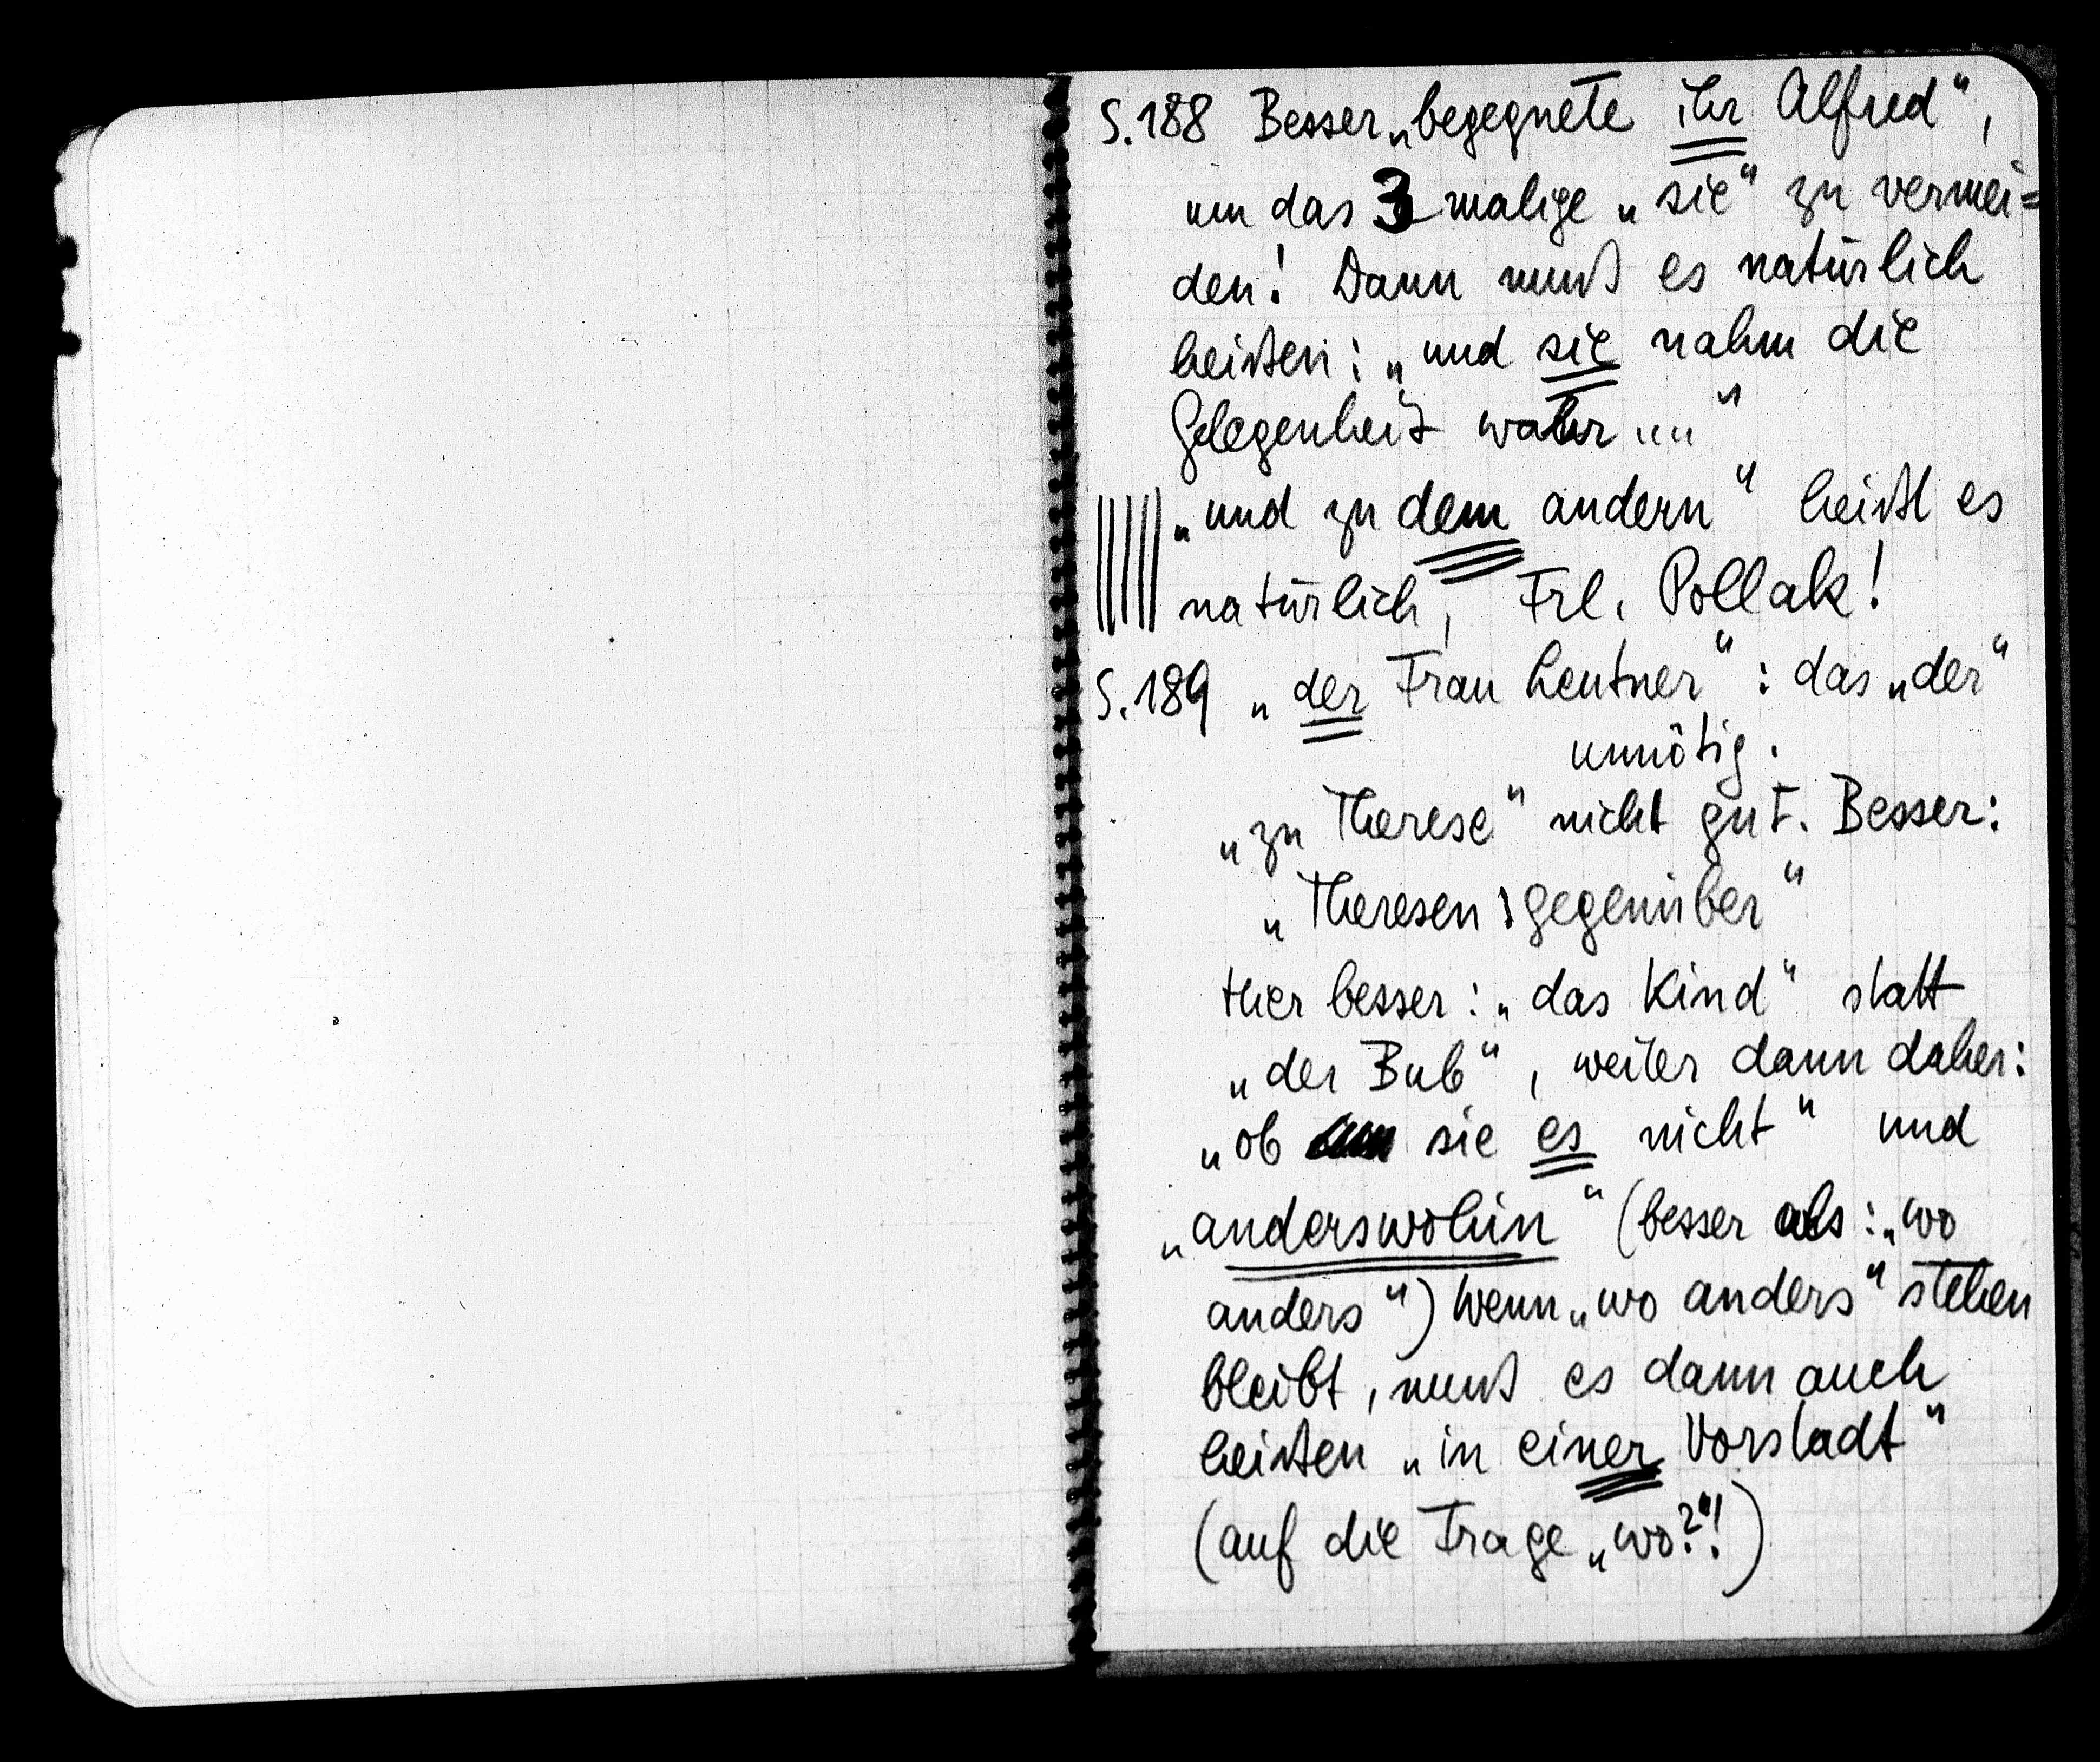 S.188 Besser „begegnete ihr Alfred“,
um das 3 malige „sie“ zu vermei=
den! Dann muß es natürlich
heißen: „und sie nahm die
Gelegenheit wahr....“
„und zu dem andern“ heißt es
natürlich, Frl. Pollak!
S.189 „der Frau Leutner“: das „der“
unnötig.
„zu Therese“ nicht gut. Besser:
„Theresen gegenüber“
Hier besser: „das Kind“ statt
„der Bub“, weiter dann daher:
„ob sie es nicht“ und
„anderswohin“ (besser als: „wo
anders“) Wenn „wo anders“ stehen
bleibt, muß es dann auch
heißen „in einer Vorstadt“
(auf die Frage „wo?“!)